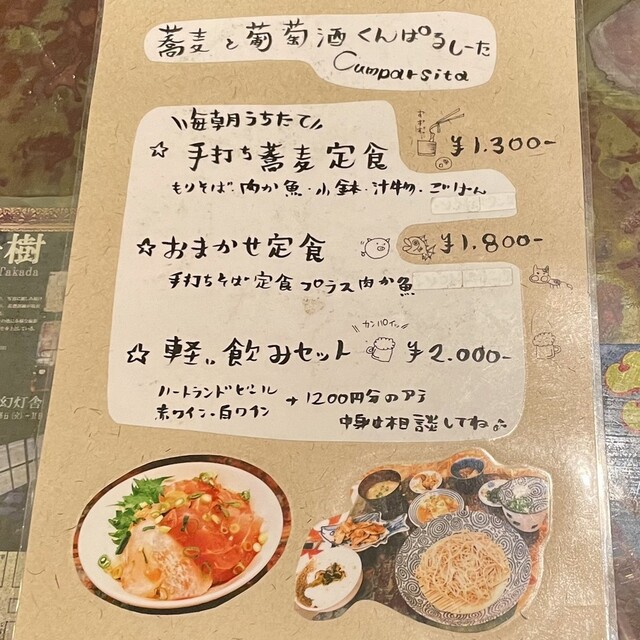 蕎麦と葡萄酒くんぱるしーた
Cumparsita
毎朝うちたて
☆ 手打ち蕎麦定食 ¥1.300-
もりそば・肉か魚・小鉢・汁物・ごはん
☆ おまかせ定食 ¥1.800-
手打ちそば定食プラス肉か魚
カンパイッ
☆ 軽い飲みセット ¥2.000-
ハートランドビール
赤ワイン・白ワイン
+ 1200円分のアテ
中身は相談してね♪
樹
Takada
幻灯舎